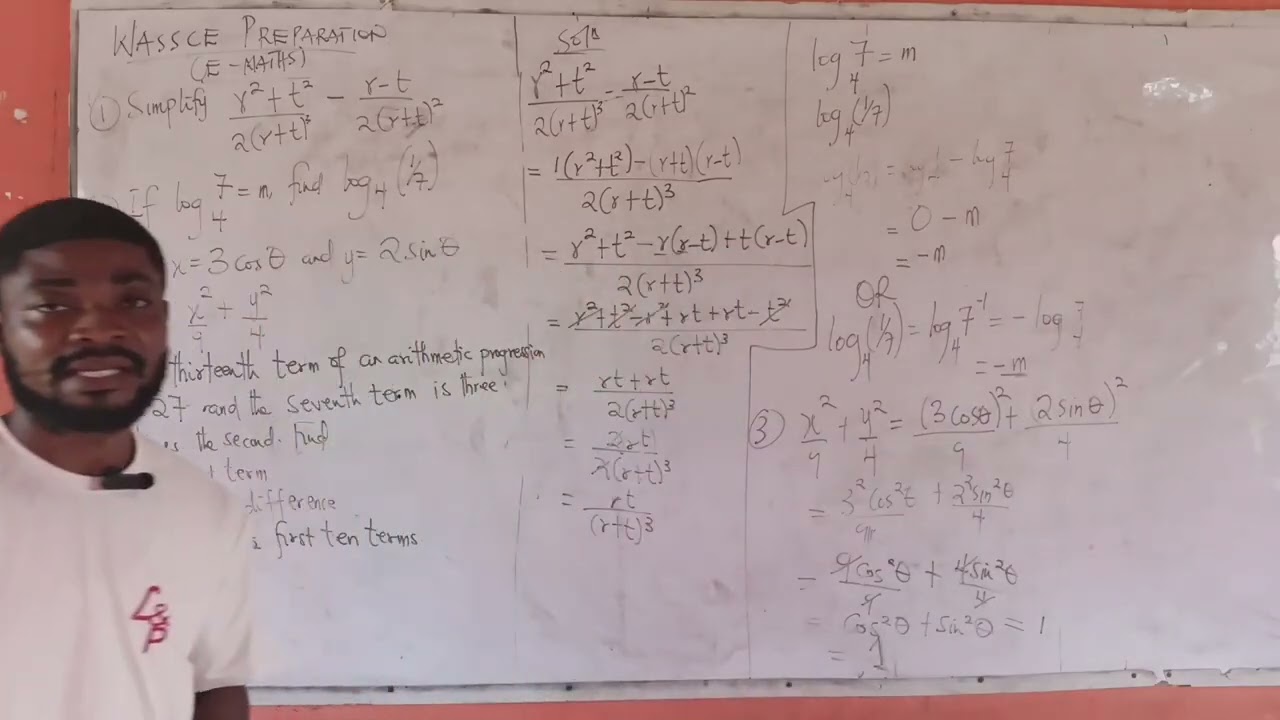 WASSCE PREPARATION
(E-MATHS)
① Simplify (r²+t²)/(2(r+t)³) − (r−t)/(2(r+t)²)
If log₄7 = m, find log₄(1/7)
x = 3cosθ and y = 2sinθ
x²/9 + y²/4
thirteenth term of an arithmetic progression
27 and the seventh term is three
the second. Find
term
difference
first ten terms
Soln
(r²+t²)/(2(r+t)³) − (r−t)/(2(r+t)²)
= (1(r²+t²) − (r+t)(r−t))/(2(r+t)³)
= (r²+t² − r(r−t) + t(r−t))/(2(r+t)³)
= (r²+t² − r² + rt + rt − t²)/(2(r+t)³)
= (rt + rt)/(2(r+t)³)
= (2rt)/(2(r+t)³)
= rt/(r+t)³
log₄7 = m
log₄(1/7)
− log₄7
= 0 − m
= −m
OR
log₄(1/7) = log₄7⁻¹ = − log₄7
= −m
③ x²/9 + y²/4 = (3cosθ)²/9 + (2sinθ)²/4
= 3²cos²t/9 + 2²sin²θ/4
= 9cos²θ/9 + 4sin²θ/4
= cos²θ + sin²θ = 1
= 1